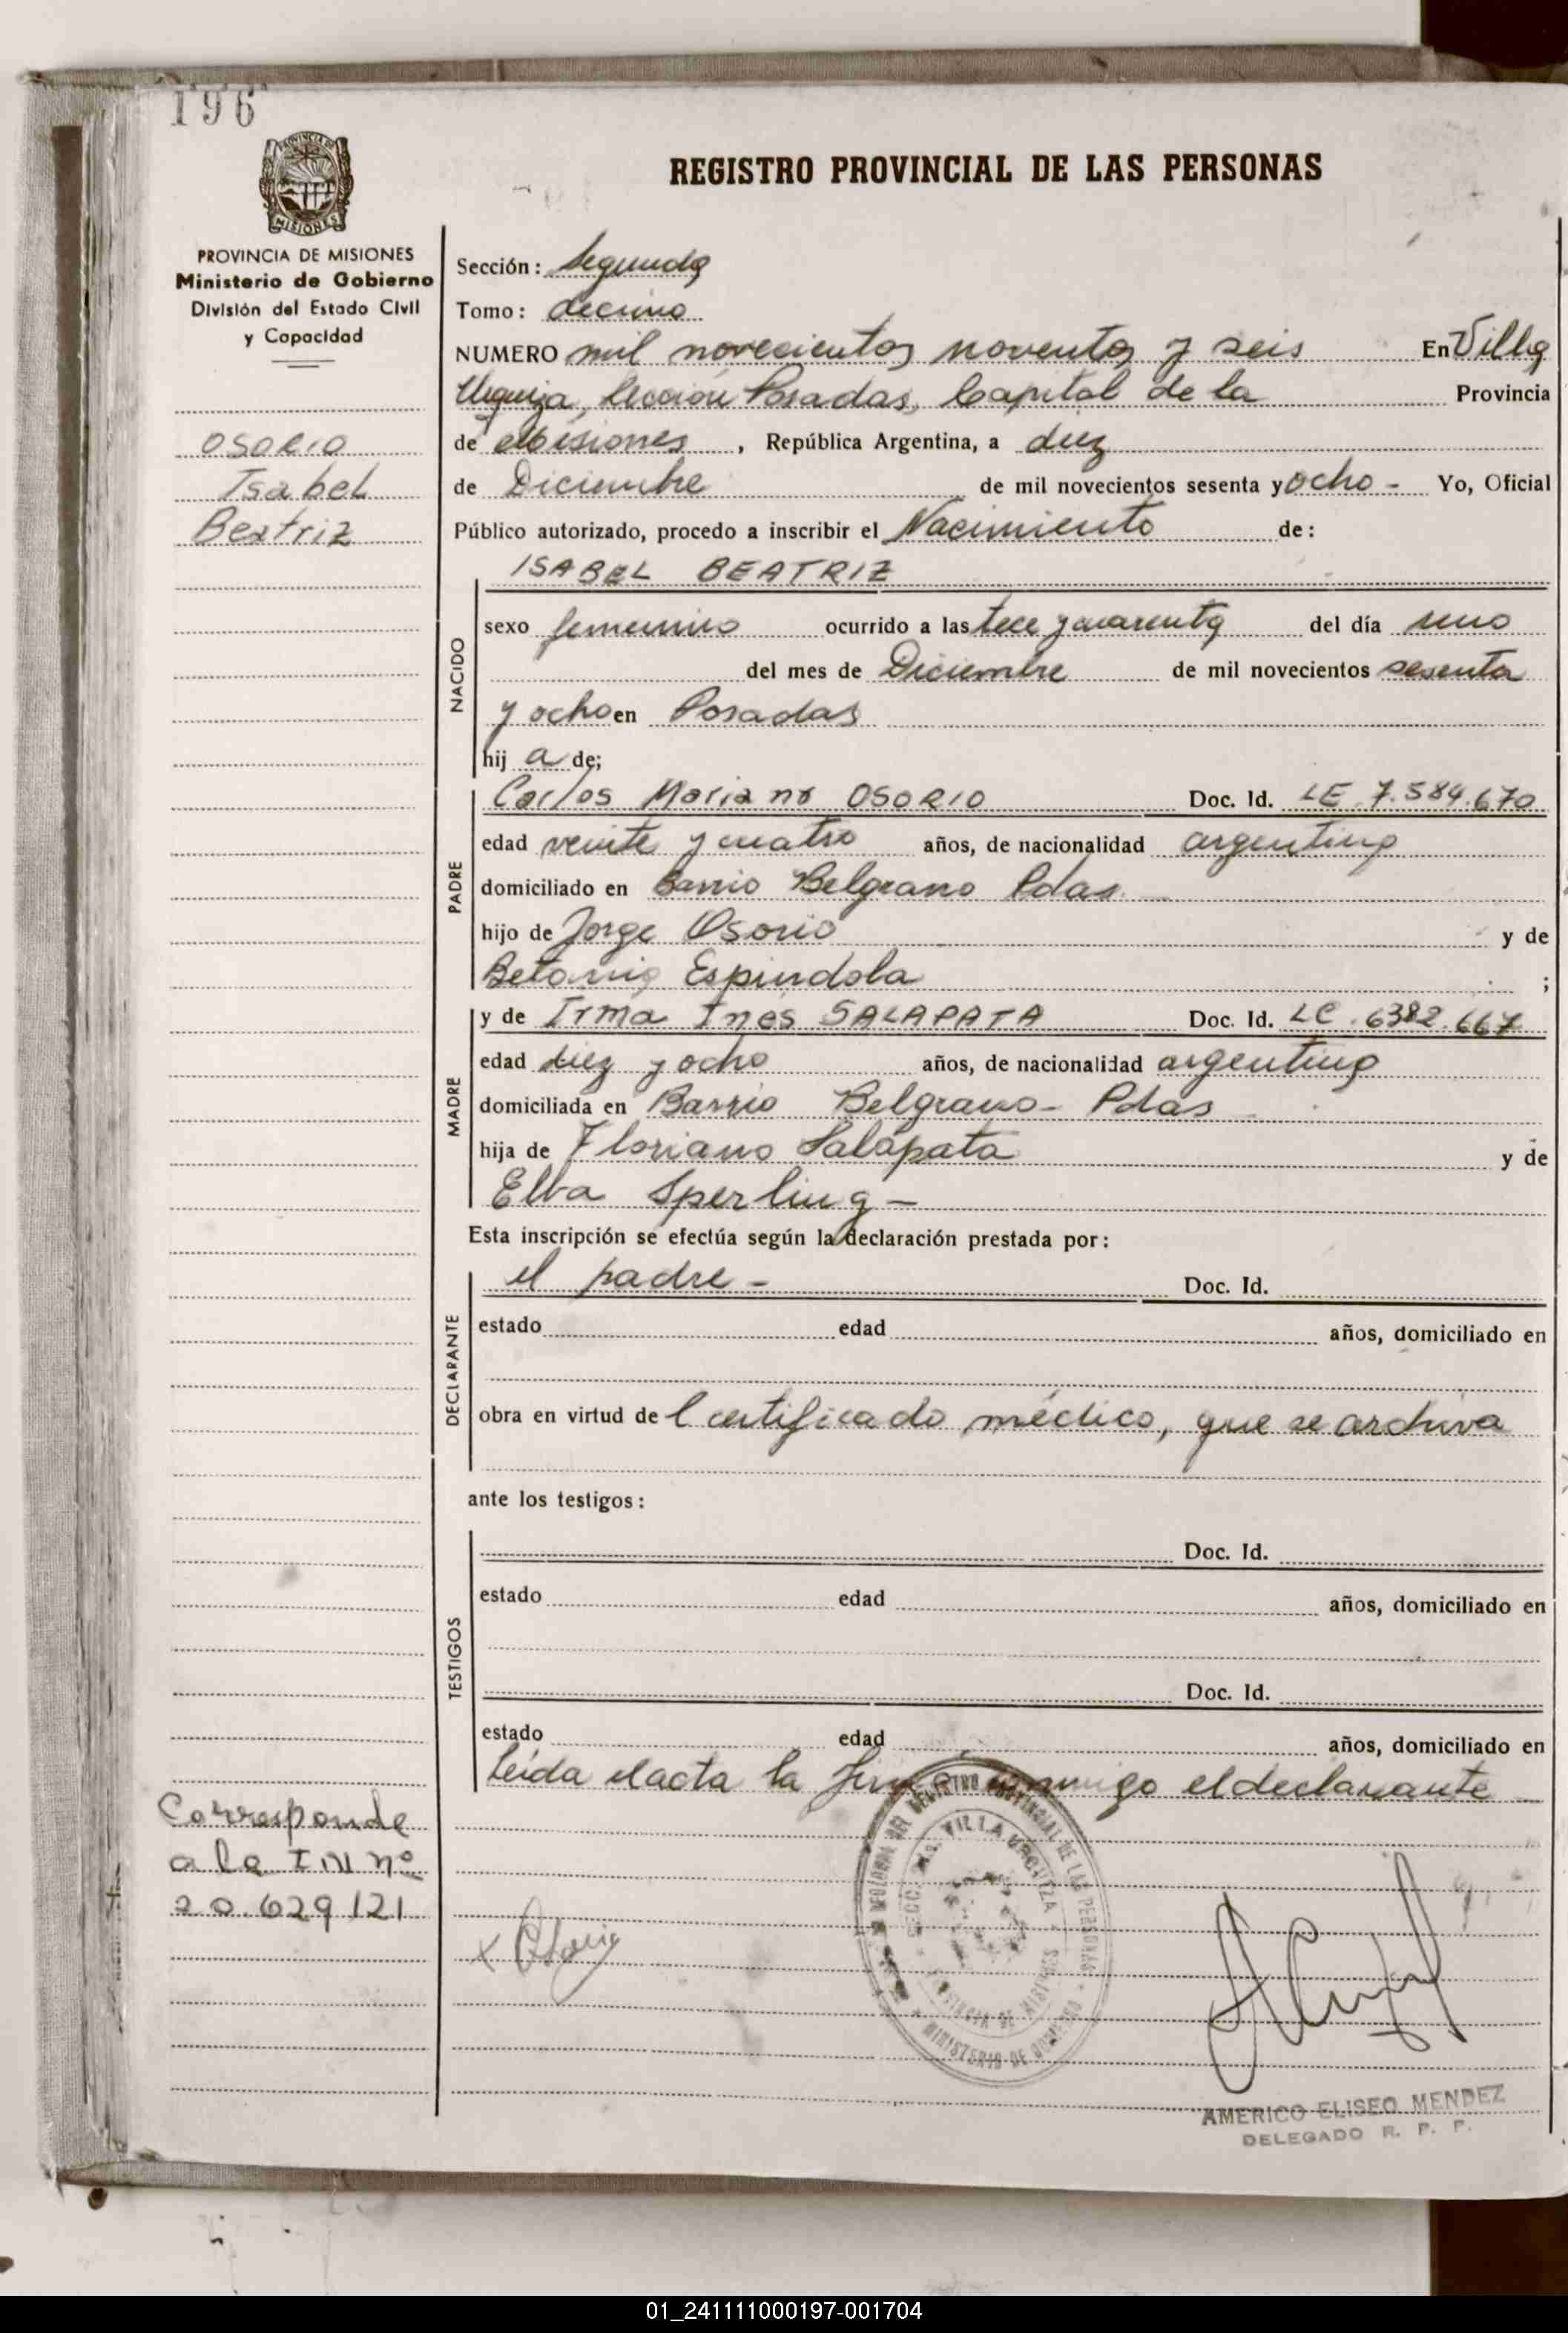 196
REGISTRO PROVINCIAL DE LAS PERSONAS
PROVINCIA DE MISIONES
Ministerio de Gobierno
División del Estado Civil
y Capacidad
OSORIO
Isabel
Beatriz
Sección: Segunda
Tomo: decimo
NUMERO mil novecientos noventa y seis En Villa
Urquiza, Sección Posadas, Capital de la Provincia
de Misiones, República Argentina, a diez
de Diciembre de mil novecientos sesenta y ocho - Yo, Oficial
Público autorizado, procedo a inscribir el Nacimiento de:
ISABEL BEATRIZ
NACIDO
sexo femenino ocurrido a las trece y cuarenta del día uno
del mes de Diciembre de mil novecientos sesenta
y ocho en Posadas
hij a de;
PADRE
Carlos Mariano OSORIO Doc. Id. LE 7.584.670
edad veinte y cuatro años, de nacionalidad argentina
domiciliado en Barrio Belgrano Pdas.
hijo de Jorge Osorio y de
Espindola ;
MADRE
y de Irma Ines SALAPATA Doc. Id. LC. 6382.667
edad diez y ocho años, de nacionalidad argentina
domiciliada en Barrio Belgrano - Pdas
hija de Floriano Salapata y de
Elba Sperling -
Esta inscripción se efectúa según la declaración prestada por:
DECLARANTE
el padre - Doc. Id.
estado edad años, domiciliado en
obra en virtud de l certificado médico, que se archiva
ante los testigos:
TESTIGOS
Doc. Id.
estado edad años, domiciliado en
Doc. Id.
estado edad años, domiciliado en
Leida el acta la firma conmigo el declarante
Corresponde
a la IN nº
20.629121
VILLA URQUIZA
REGISTRO PROVINCIAL DE LAS PERSONAS
MINISTERIO DE GOBIERNO
AMERICO ELISEO MENDEZ
DELEGADO R. P. P.
01_241111000197-001704